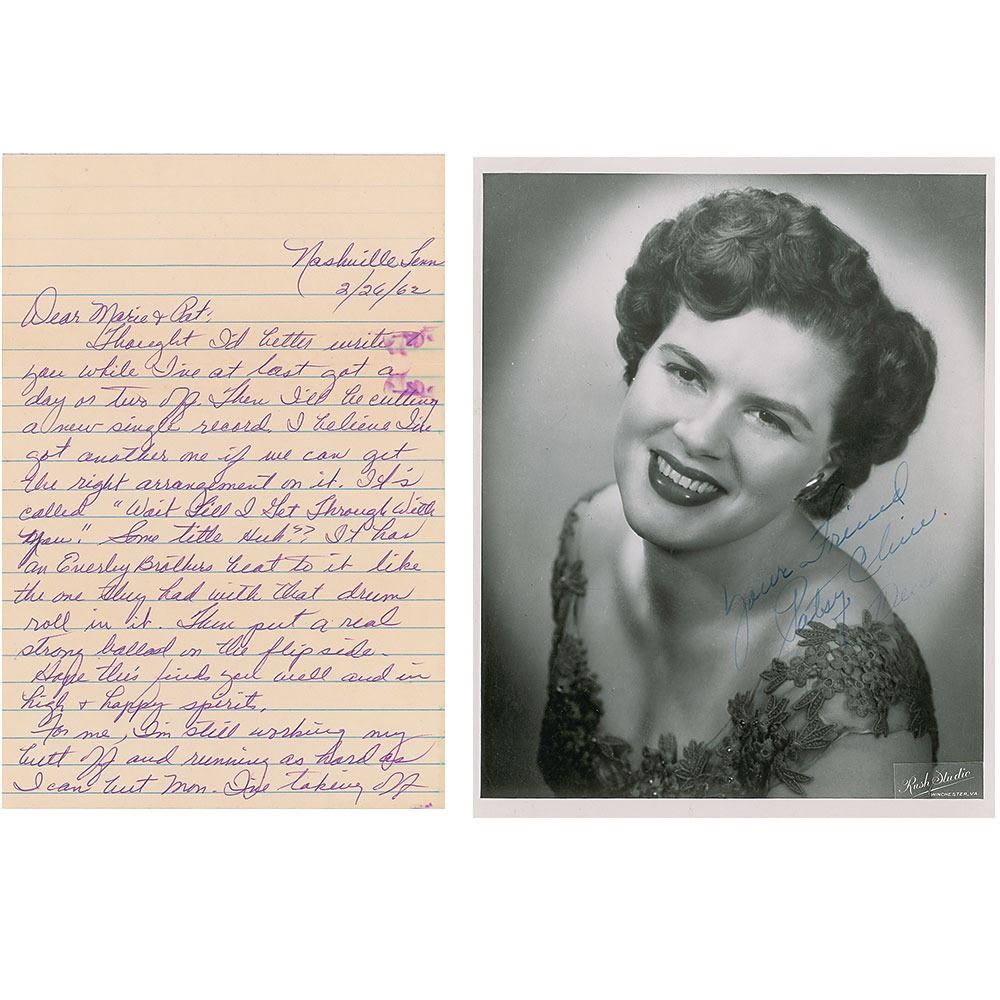 Nashville Tenn
2/26/62
Dear Marie & Pat:
Thought I'd better write
you while I've at last got a
day or two off. Then I'll be cutting
a new single record. I believe I've
got another one if we can get
the right arrangement on it. It's
called "Wait Till I Get Through With
You". Some title Huh?? It has
an Everley Brothers beat to it like
the one they had with that drum
roll in it. Then put a real
strong ballad on the flip side.
Hope this finds you well and in
high & happy spirits.
For me, I'm still working my
butt off and running as hard as
I can but Mon. I'm taking off
Your Friend
Patsy Cline.
Rush Studio
WINCHESTER, VA.